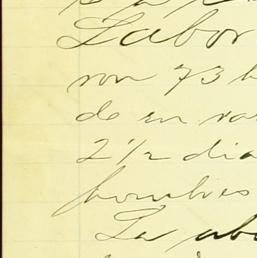 Labor
ron 73 h
de en va
2 1/2 dia
hombres
La abo